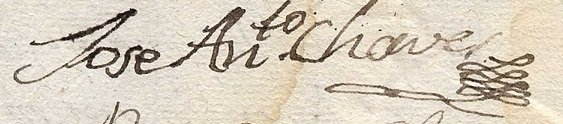 Jose Anto. Chavez